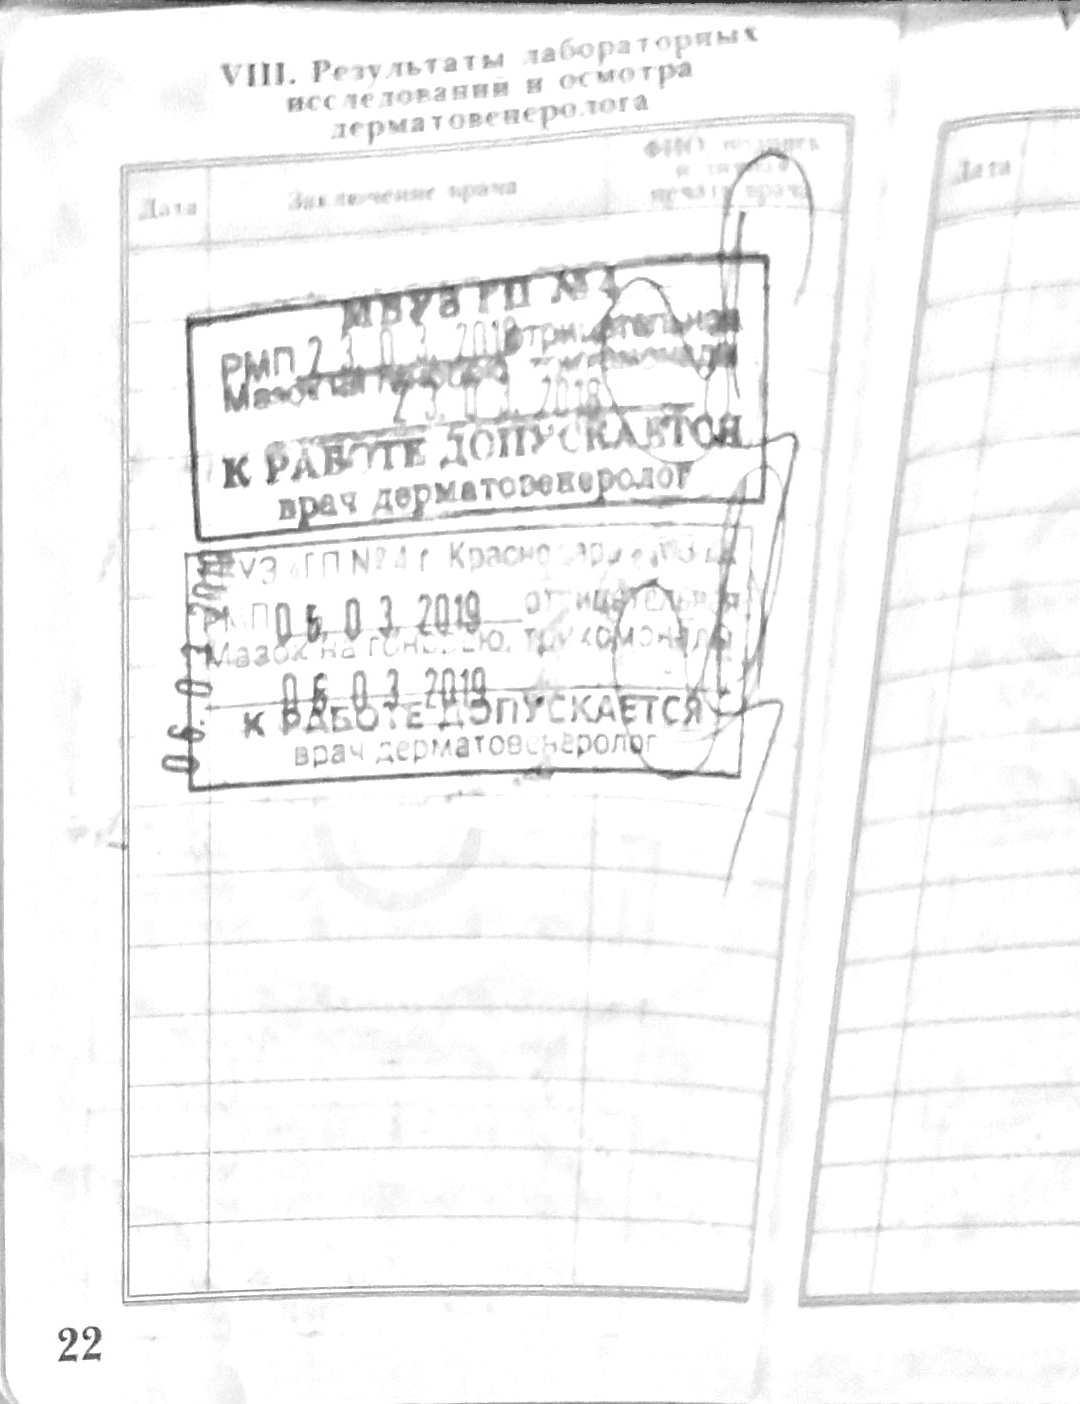 VIII. Результаты лабораторных
исследований и осмотра
дерматовенеролога
Дата
Заключение врача
ФИО, подпись
и личная
печать врача
Дата
МБУЗ ГП № 4
РМП 23.03.2018 отрицательная
Мазок на гонорею, трихомонады
23.03.2018
К РАБОТЕ ДОПУСКАЕТСЯ
врач дерматовенеролог
ГП № 4 г.
РМП 06.03.2019 отрицательная
Мазок на гонорею, трихомонады
06.03.2019
К РАБОТЕ ДОПУСКАЕТСЯ
врач дерматовенеролог
22